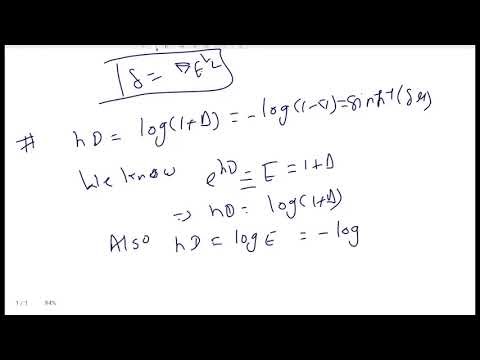 δ = ∇E^½
# hD = log(1+Δ) = -log(1-∇) = sinh⁻¹(δμ)
We know e^hD = E = 1+Δ
⇒ hD = log(1+Δ)
Also hD = log E = -log
1 / 1 84%